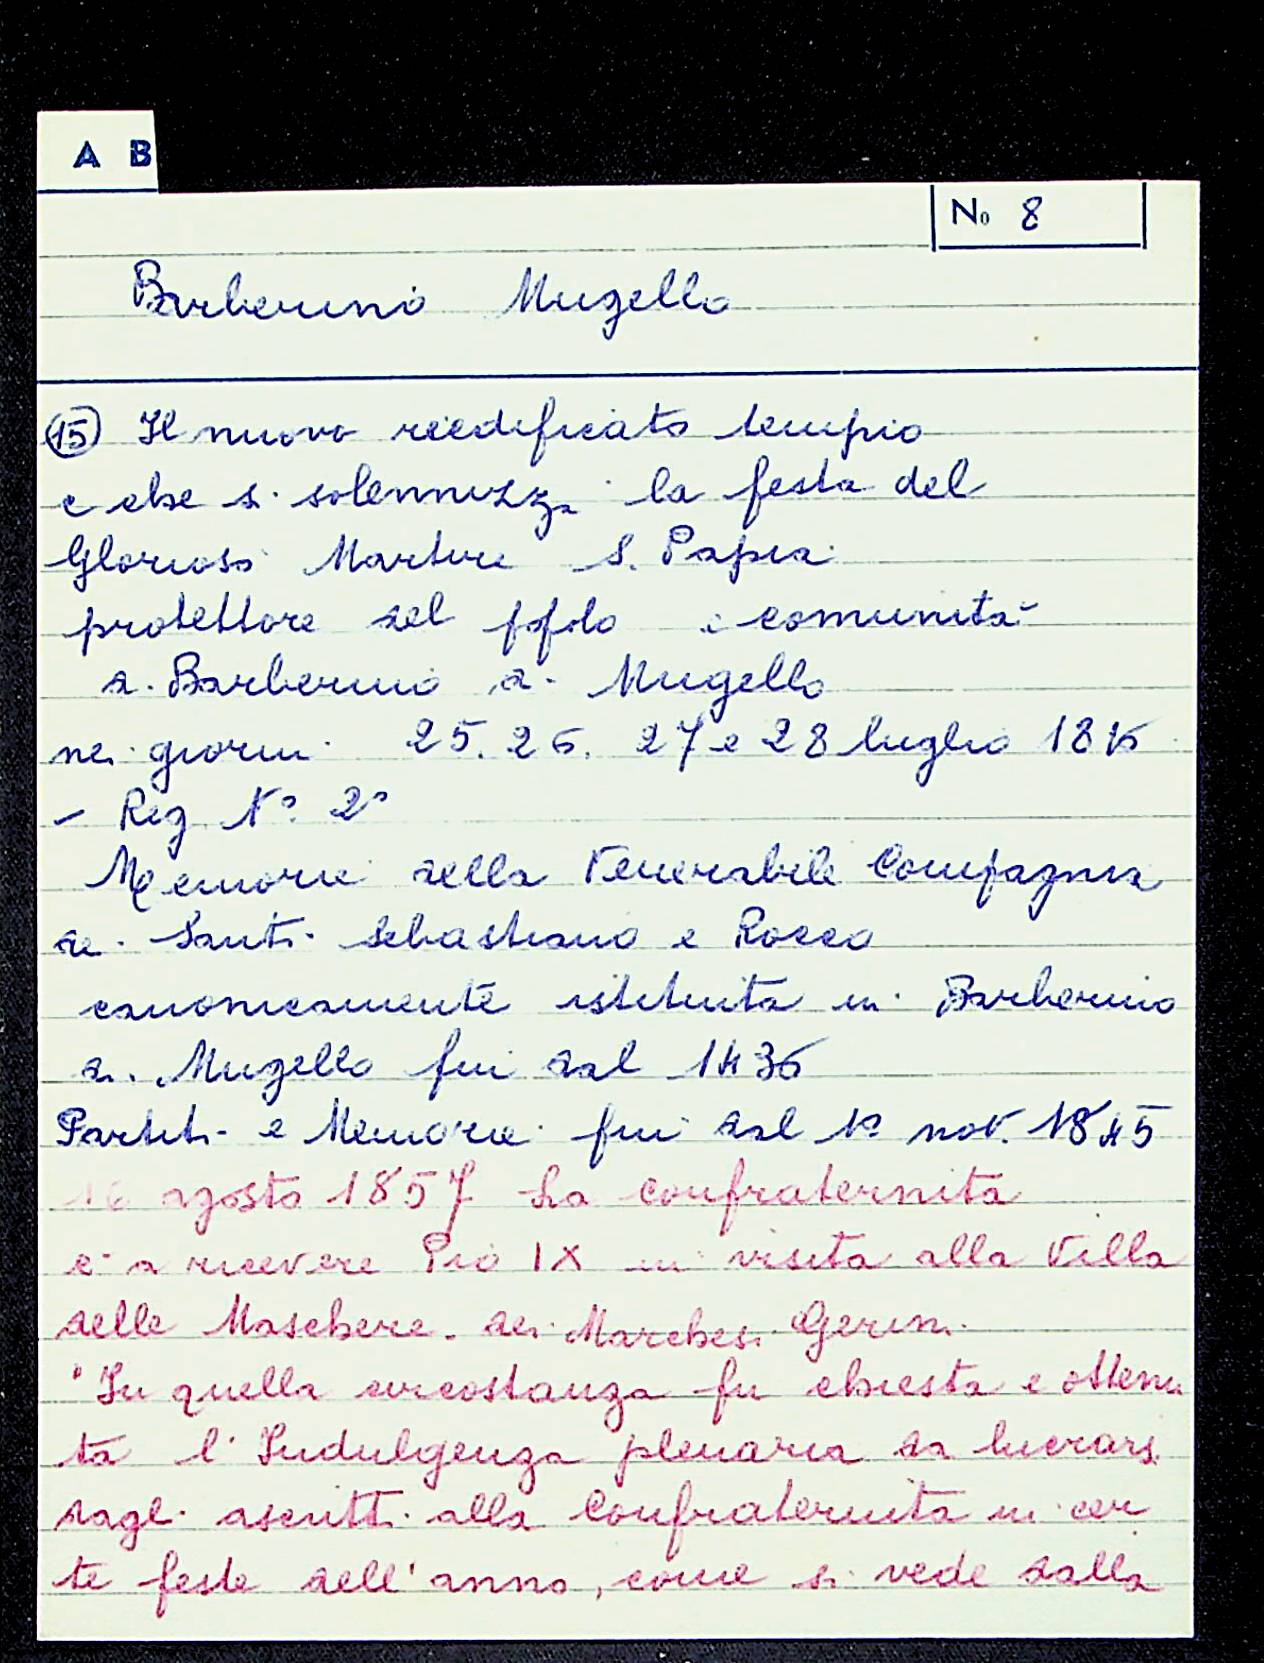 A B
No 8
Barberino Mugello
(15) Il nuovo riedificato tempio
e che si solennizza la festa del
Glorioso Martire S. Papia
protettore del popolo e comunità
di Barberino di Mugello
nei giorni 25. 26. 27 e 28 luglio
- Reg. N° 2°
Memorie della Venerabile Compagnia
dei Santi Sebastiano e Rocco
canonicamente istituita in Barberino
di Mugello fin dal 1436
Partiti e Memorie fin dal 1° nov. 1845
16 agosto 1857 La confraternita
è a ricevere Pio IX in visita alla Villa
delle Maschere dei Marchesi Gerini.
"In quella circostanza fu chiesta e ottenu
ta l'Indulgenza plenaria da lucrarsi
dagli ascritti alla Confraternita in cer
te feste dell'anno, come si vede dalla